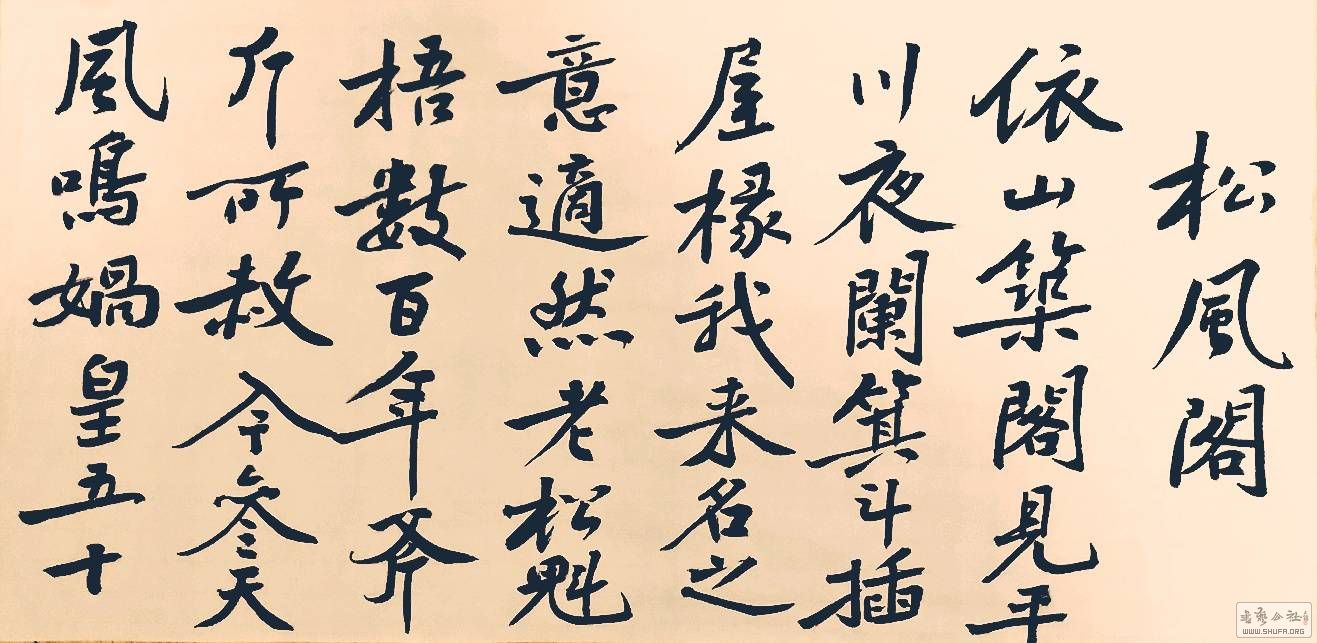 松風閣
依山築閣見平
川夜闌箕斗插
屋椽我来名之
意適然老松魁
梧數百年斧
斤所赦今參天
風鳴媧皇五十
WWW.SHUFA.ORG